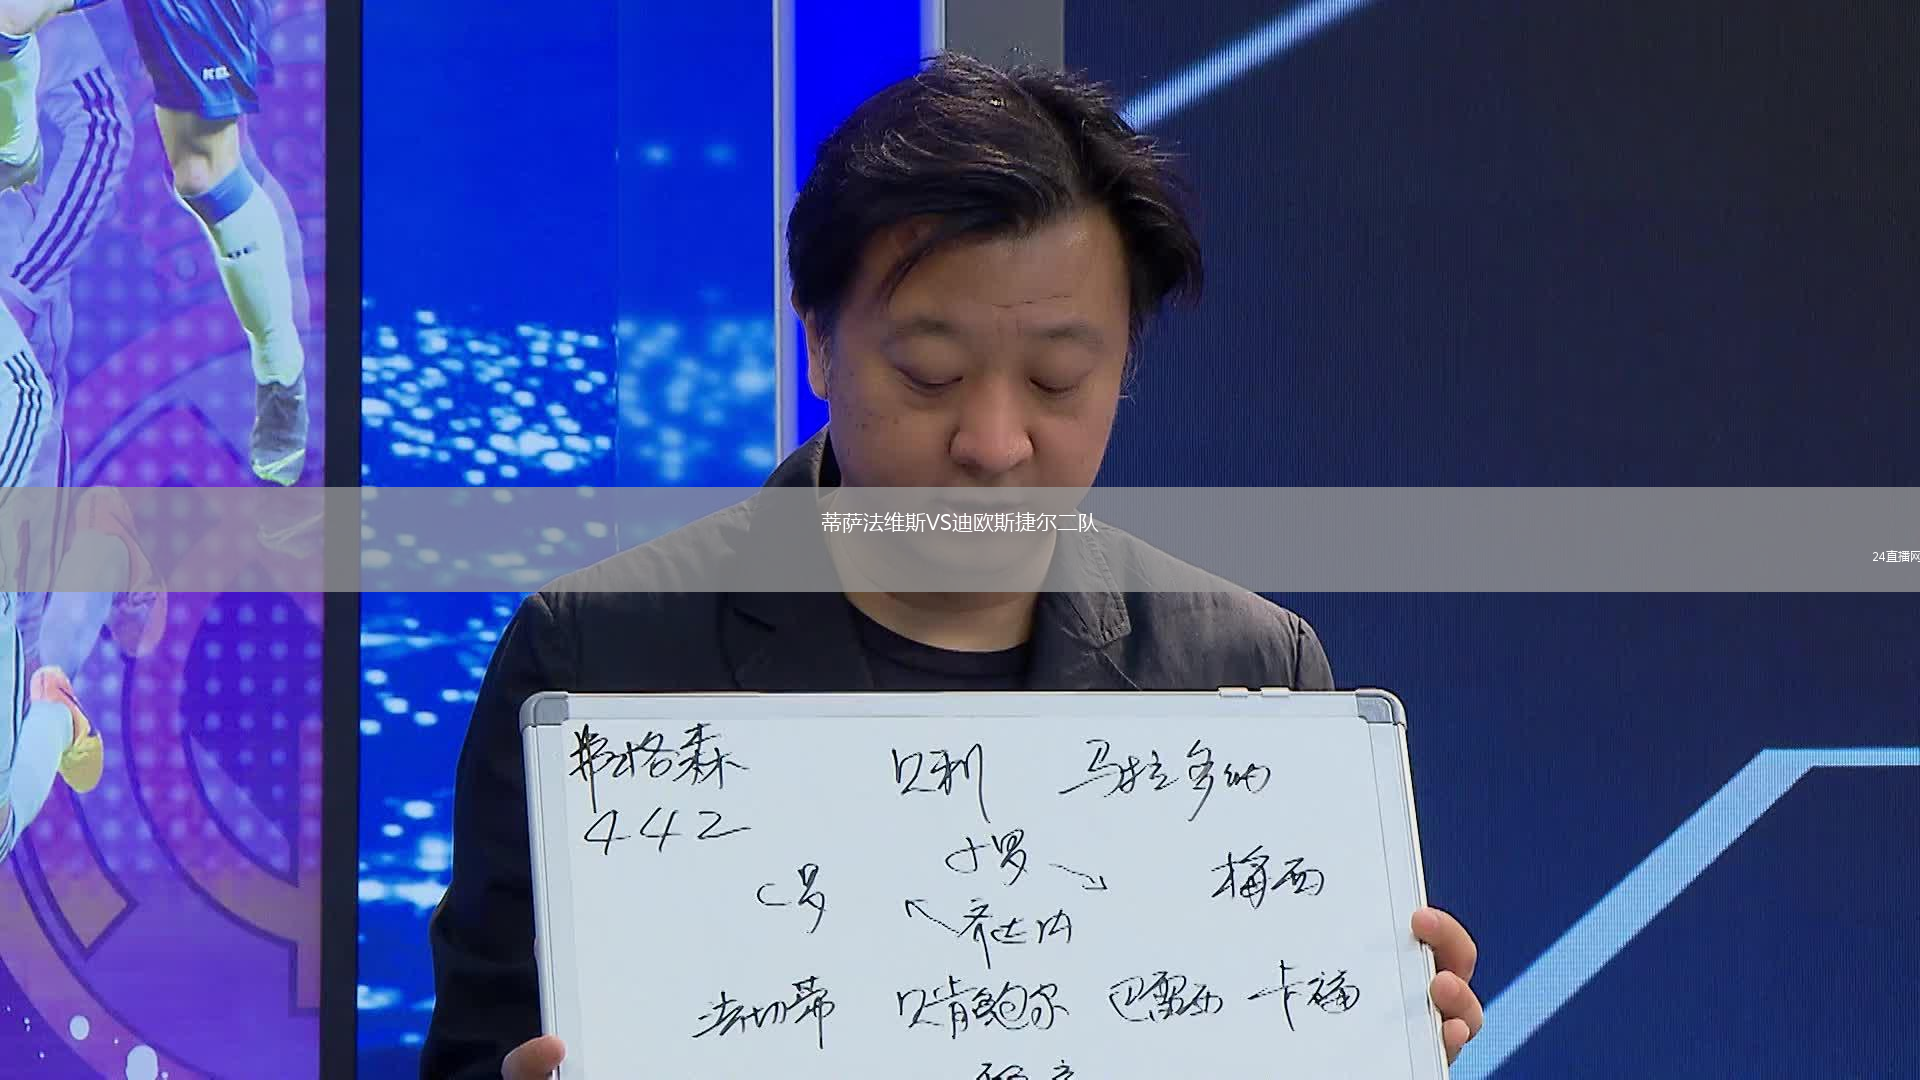 蒂萨法维斯VS迪欧斯捷尔二队
24直播网
弗格森 贝利 马拉多纳
442
小罗
C罗 梅西
齐达内
法切蒂 贝肯鲍尔 巴雷西 卡福